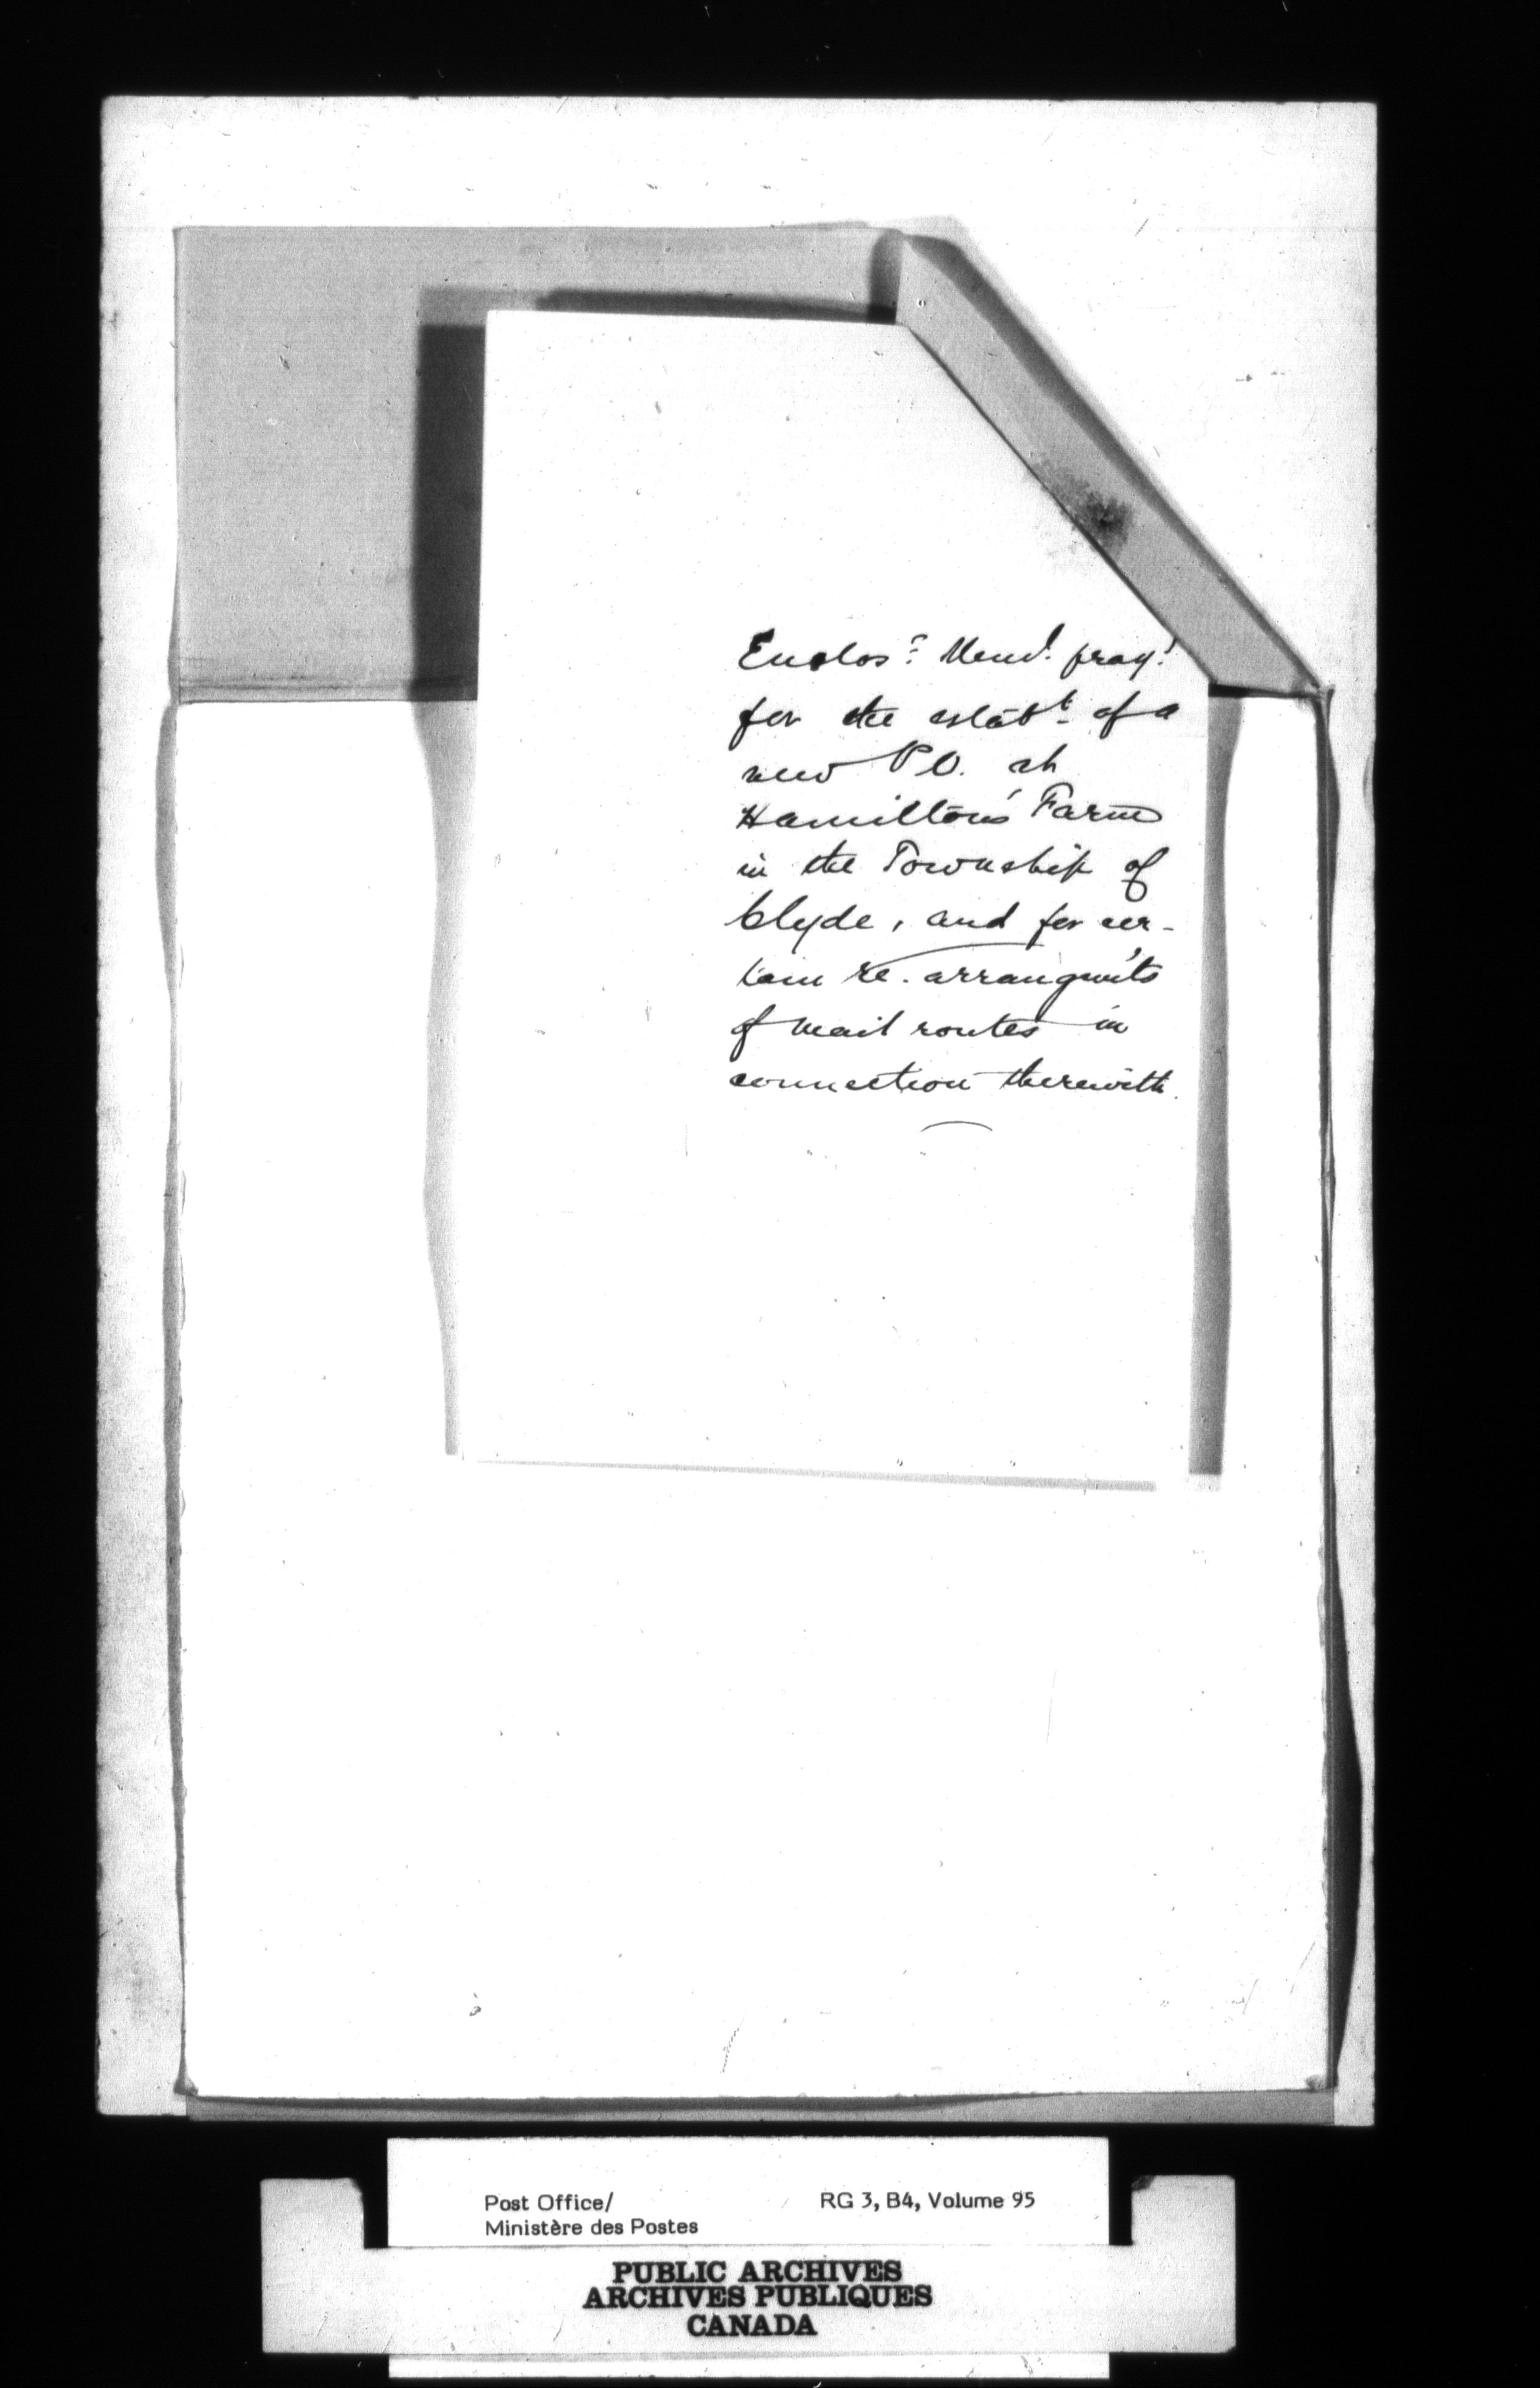 Enclos.g Mem.l pray.g
for the establt. of a
new P O. at
Hamilton's Farm
in the Township of
Clyde, and for cer-
tain re-arrangm'ts
of mail routes in
connection therewith.
Post Office/ RG 3, B4, Volume 95
Ministère des Postes
PUBLIC ARCHIVES
ARCHIVES PUBLIQUES
CANADA